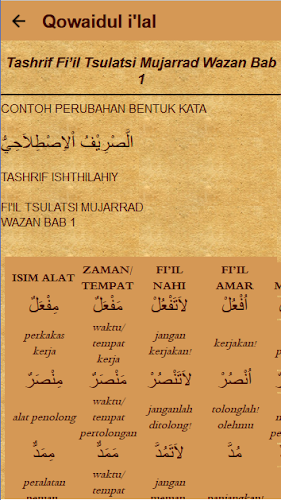 Qowaidul i'lal
Tashrif Fi'il Tsulatsi Mujarrad Wazan Bab
1
CONTOH PERUBAHAN BENTUK KATA
الَّصْرِيْفُ اْلاِصْطِلاَحِيُّ
TASHRIF ISHTHILAHIY
FI'IL TSULATSI MUJARRAD
WAZAN BAB 1
ISIM ALAT ZAMAN/ TEMPAT FI'IL NAHI FI'IL AMAR
مِفْعَلٌ مَفْعَلٌ لاَتَفْعُلْ اُفْعُلْ
perkakas kerja waktu/ tempat kerja jangan kerjakan! kerjakan!
مِنْصَرٌ مَنْصَرٌ لاَتَنْصُرْ اُنْصُرْ
alat penolong waktu/ tempat pertolongan janganlah ditolong! tolonglah! olehmu
مِمَدٌّ مَمَدٌّ لاَتَمُدَّ مُدَّ
peralatan waktu/ tempat jangan